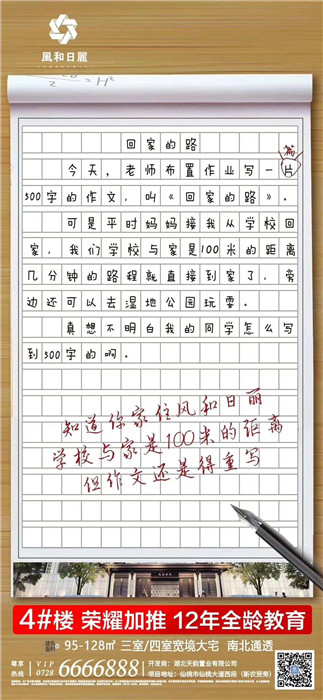 風和日麗
回家的路
今天，老师布置作业写一片
篇
500字的作文，叫《回家的路》。
可是平时妈妈接我从学校回
家，我们学校与家是100米的距离
几分钟的路程就直接到家了，旁
边还可以去湿地公园玩耍。
真想不明白我的同学怎么写
到500字的啊。
知道你家住风和日丽
学校与家是100米的距离
但作文还是得重写
4#楼 荣耀加推 12年全龄教育
建筑面积 95-128㎡ 三室/四室宽境大宅 南北通透
尊享热线 VIP 0728 6666888
开发商：湖北天韵置业有限公司
项目地址：仙桃市仙桃大道西段（新农贸旁）